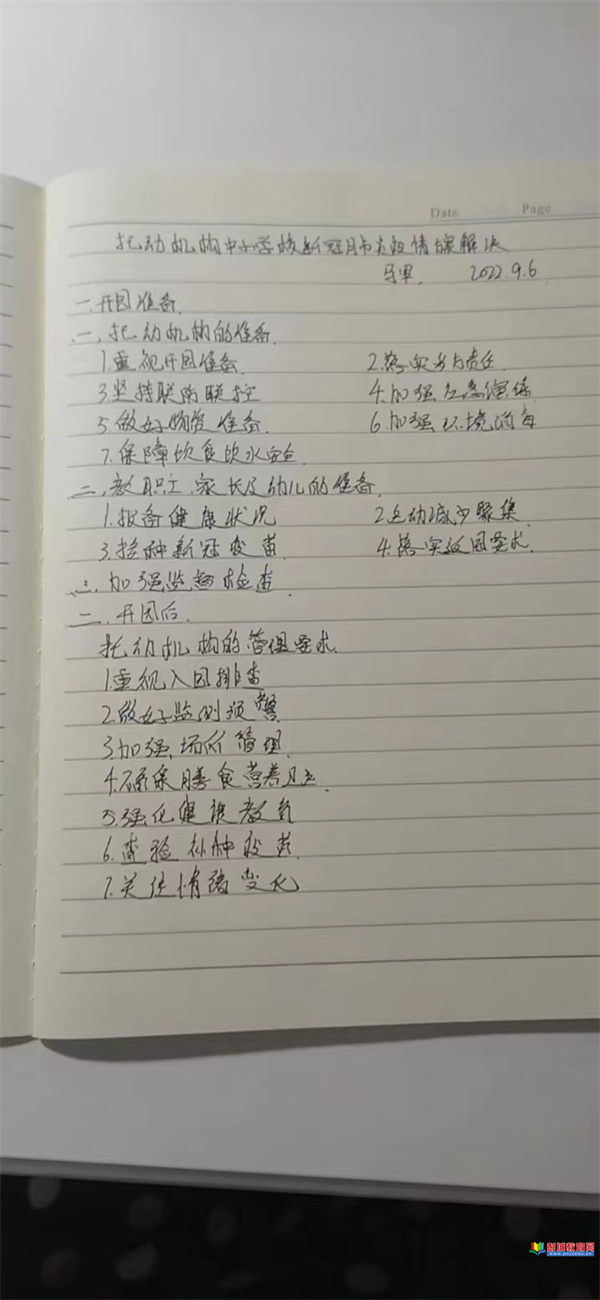 Date Page
托幼机构中小学校新冠肺炎疫情 解决
马 2022.9.6
一.开园准备.
一,托幼机构的准备.
1.重视开园准备. 2.落实 责任.
3.坚持联防联控 4.加强应急演练
5.做好物资准备. 6.加强环境消毒
7.保障饮食饮水安全.
二,教职工、家长及幼儿的准备.
1.报备健康状况 2.主动减少聚集.
3.接种新冠疫苗. 4.落实返园要求.
三.加强监督检查.
二.开园后.
托幼机构的管理要求.
1.重视入园排查
2.做好监测预警.
3.加强场所管理.
4.确保膳食营养卫生.
5.强化健康教育
6.查验补种疫苗.
7.关注情绪变化